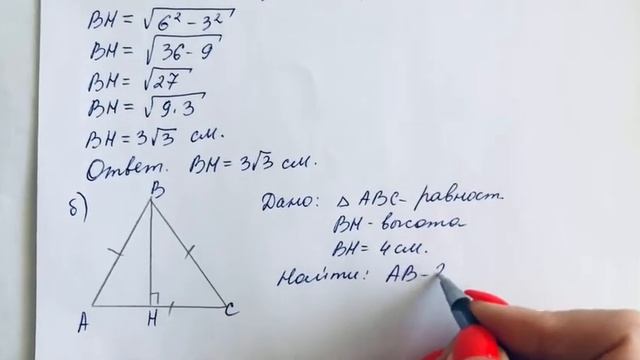 BH = √6² - 3²
BH = √36 - 9
BH = √27
BH = √9·3
BH = 3√3 см.
Ответ. BH = 3√3 см.
б)
B
A
H
C
Дано: △ ABC - равност.
BH - высота
BH = 4 см.
Найти: AB - ?